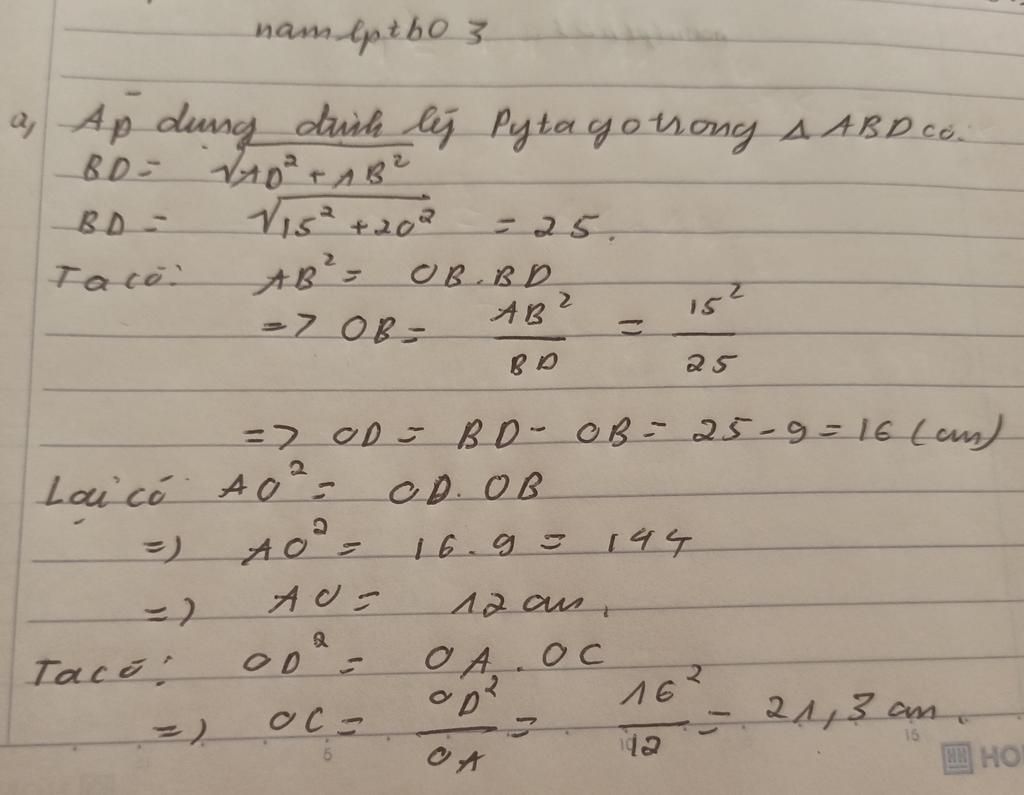 namlptb03
a, Áp dụng định lý Pytago trong △ ABD có:
BD = √AD² + AB²
BD = √15² + 20² = 25.
Ta có: AB² = OB.BD
=> OB = AB²/BD = 15²/25
=> OD = BD - OB = 25 - 9 = 16 (cm)
Lại có AO² = OD.OB
=> AO² = 16.9 = 144
=> AO = 12 cm.
Ta có: OD² = OA.OC
=> OC = OD²/OA = 16²/12 = 21,3 cm.
5 10 15
HO